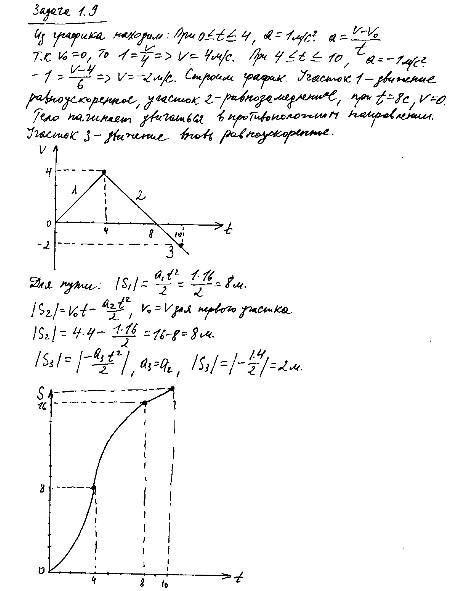 Задача 1.9
Из графика находим: При 0≤t≤4, a=1м/с² a=V-V₀/t
Т.к V₀=0, то 1=V/4 => V=4м/с. При 4≤t≤10, a=-1м/с²
-1=V-4/6 => V=-2м/с. Строим график. Участок 1-движение
равноускоренное, участок 2-равнозамедленное, при t=8с, V=0.
Тело начинает двигаться в противоположном направлении.
Участок 3-движение вновь равноускоренное.
V
4
1
2
0
4
8
10
t
-2
3
Для пути: |S₁|=a₁t²/2=1·16/2=8м.
|S₂|=V₀t-a₂t²/2, V₀=V для первого участка
|S₂|=4·4-1·16/2=16-8=8м.
|S₃|=|-a₃t²/2|, a₃=a₂, |S₃|=|-1·4/2|=2м.
S
16
8
0
4
8
10
t